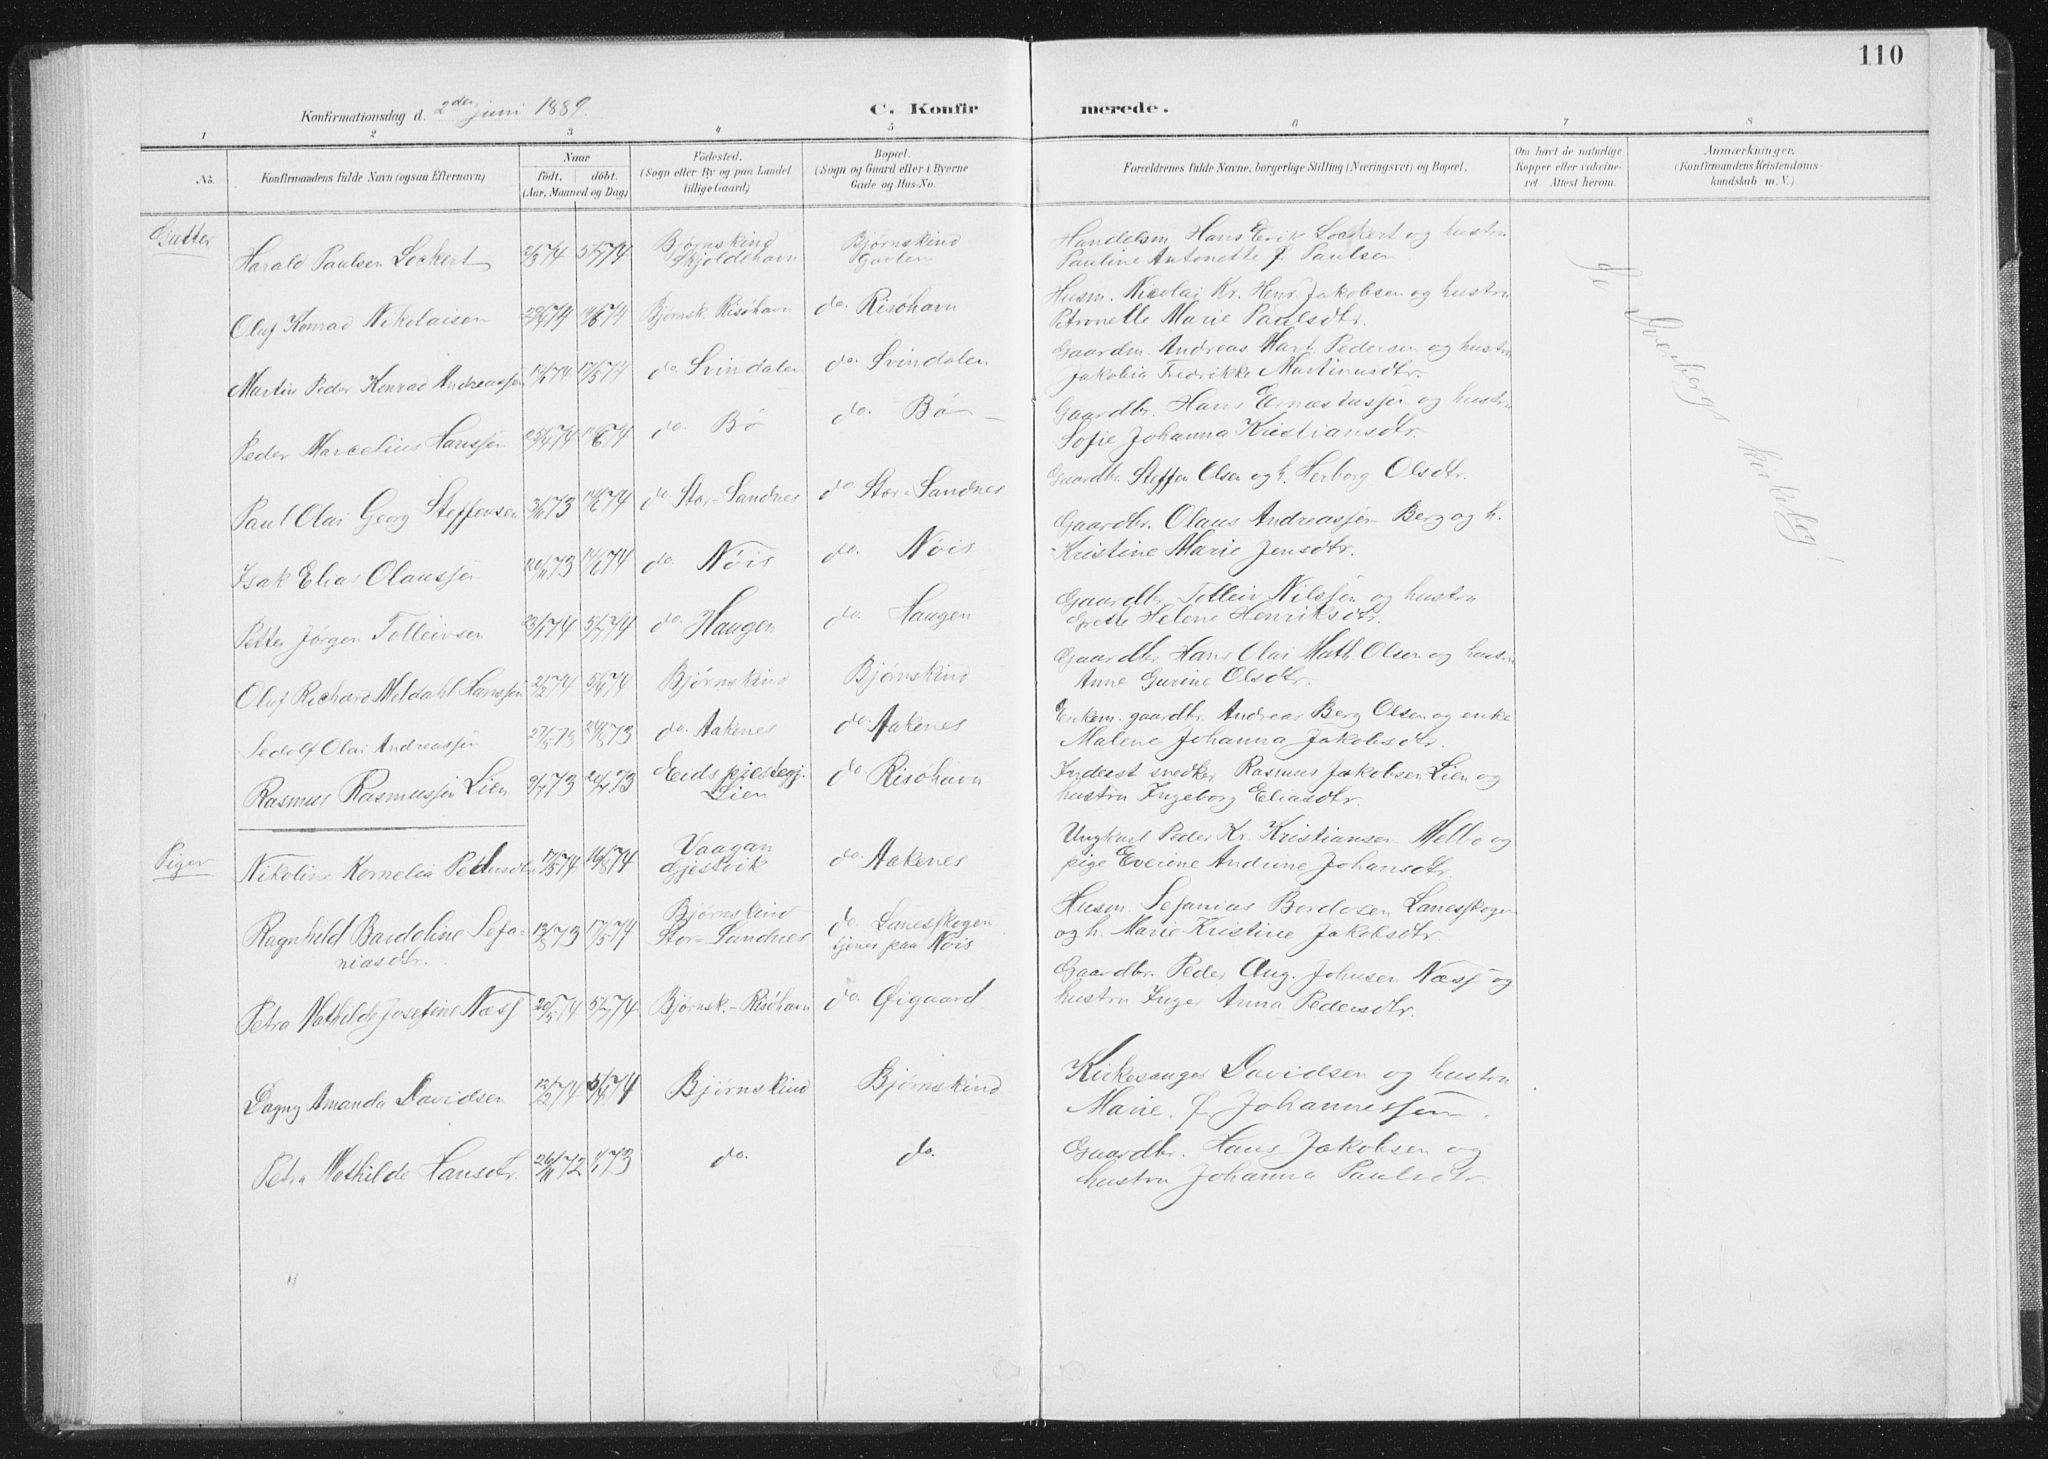 110
Konfirmationsdag d. 2den juni 1889.
C. Konfirmerede.
1 2 3 4 5 6 7 8
No.
Konfirmandens fulde Navn (ogsaa Efternavn)
Naar
født. døbt.
(Aar, Maaned og Dag)
Fødested.
(Sogn eller By og paa Landet
tillige Gaard)
Bopæl.
(Sogn og Gaard eller i Byerne
Gade og Hus-No.
Forældrenes fulde Navne, borgerlige Stilling (Næringsvei) og Bopæl.
Om havt de naturlige
Kopper eller vaccine-
ret Attest herom.
Anmærkninger.
(Konfirmandens Kristendoms-
kundskab m. V.)
Gutter
Harald Paulsen Lockert 5/5 74 Bjørnskind Skjoldehavn Bjørnskind Gavlen Handelsm. Hans Erik Lockert og hustru
Pauline Antonette f. Paulsen
Oluf Konrad Nikolaisen 29/4 74 14/6 74 Bjørnsk. Risøhavn do. Risøhavn Husm. Nicolai Kr. Henr. Jakobsen og hustru
Petronelle Marie Paulsdtr.
Martin Peder Konrad Andreassen 17/5 74 do. Svindalen do. Svindalen Gaardm. Andreas Mart. Pedersen og hustru
Jakobia Fredrikke Martinusdtr.
Peder Marcelius Hanssen 25/4 74 14/6 74 do. Bø do. Bø Gaardbr. Hans Ernæstussen og hustru
Sofie Johanna Kristiansdtr.
Paul Olai Georg Steffensen 3/11 73 do. Stor-Sandnes do. Stor-Sandnes Gaardbr. Steffen Olsen og h. Herborg Olsdtr.
Isak Elias Olaussen 20/11 73 do. Nøis do. Nøis Gaardbr. Olaus Andreassen Berg og h.
Kristine Marie Jensdtr.
Petter Jørgen Tolleivsen 23/1 74 5/7 74 do. Haugen do. Haugen Gaardbr. Tolleiv Nilssen og hustru
Grete Helene Henriksdtr.
Oluf Richard Meldahl Hanssen 21/2 74 5/4 74 Bjørnskind Bjørnskind Gaardbr. Hans Olai Math. Olsen og hustru
Anne Gurine Olsdtr.
Sedolf Olai Andreassen 27/5 73 24/8 73 do. Aakenes do. Aakenes Enkem. gaardbr. Andreas Berg Olsen og enke
Malene Johanna Jakobsdtr.
Rasmus Rasmussen Lien 9/7 73 20/7 73 Eids præstegj. Lien do. Risøhavn Inderst snedker Rasmus Jakobsen Lien og
hustru Ingeborg Eliasdtr.
Piger
Nikoline Kornelia 17/5 74 16/8 74 Vaagan Gjestvik do. Aakenes Ungkarl Peder Kr. Kristiansen Melbo og
pige Everine Andrine Johansdtr.
Ragnhild Bardoline Sefa-
niasdtr. 17/5 74 Bjørnskind Stor-Sandnes do. Lanesskogen
tjener paa Nøis Husm. Sefanias Bordosen Lanesskogen
og h. Marie Kristine Jakobsdtr.
Petra Mathilde Josefine Næss 20/5 74 5/7 74 Bjørnsk.-Risøhavn do. Øigaard Gaardbr. Peder Aug. Johnsen Næss og
hustru Inger Anna Pedersdtr.
Dagny Amanda Davidsen 12/2 74 5/4 74 Bjørnskind Bjørnskind Kirkesanger Davidsen og hustru
Marie f. Johannessen.
Petra Mathilde Hansdtr. 26/11 72 1/1 73 do. do. Gaardbr. Hans Jakobsen og
hustru Johanna Paulsdtr.